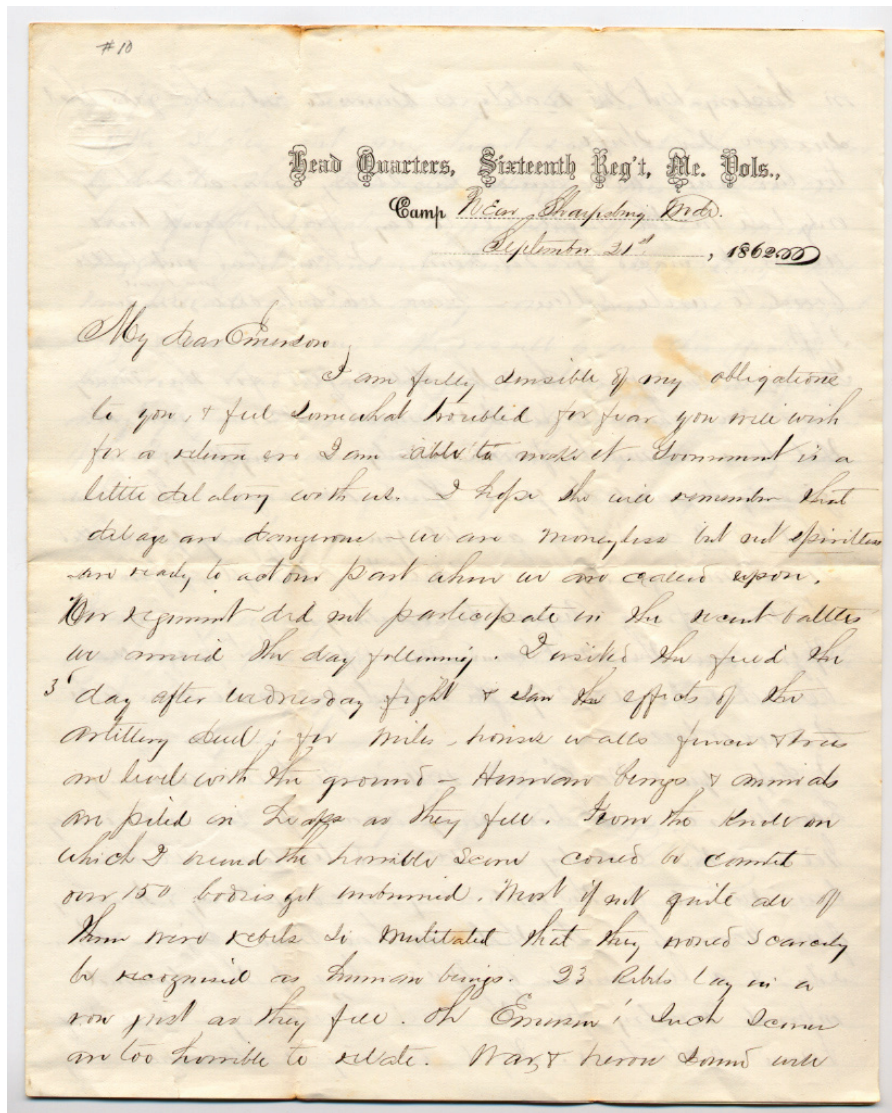 #10
Head Quarters, Sixteenth Reg't, Me. Vols.,
Camp Near Sharpsburg Md.
September 21st, 1862
My dear Emerson,
I am fully sensible of my obligations
to you, & feel somewhat troubled for fear you will wish
for a return ere I am able to make it. Government is a
little dilatory with us. I hope she will remember that
delays are dangerous - we are moneyless but not spiritless
are ready to act our part when we are called upon.
Our regiment did not participate in the recent battles
we arrived the day following. I visited the field the
3d day after wednesday fight & saw the effects of the
artillery duel; for miles, houses walls fences & trees
are level with the ground - Human beings & animals
are piled in heaps as they fell. From the knoll on
which I the horrible scene could be counted
over 150 bodies yet unburied. Most if not quite all of
them were rebels so mutilated that they would scarcely
be recognised as human beings. 23 Rebels lay in a
row just as they fell. Oh Emerson! Such scenes
are too horrible to relate. War, & heroes sound well